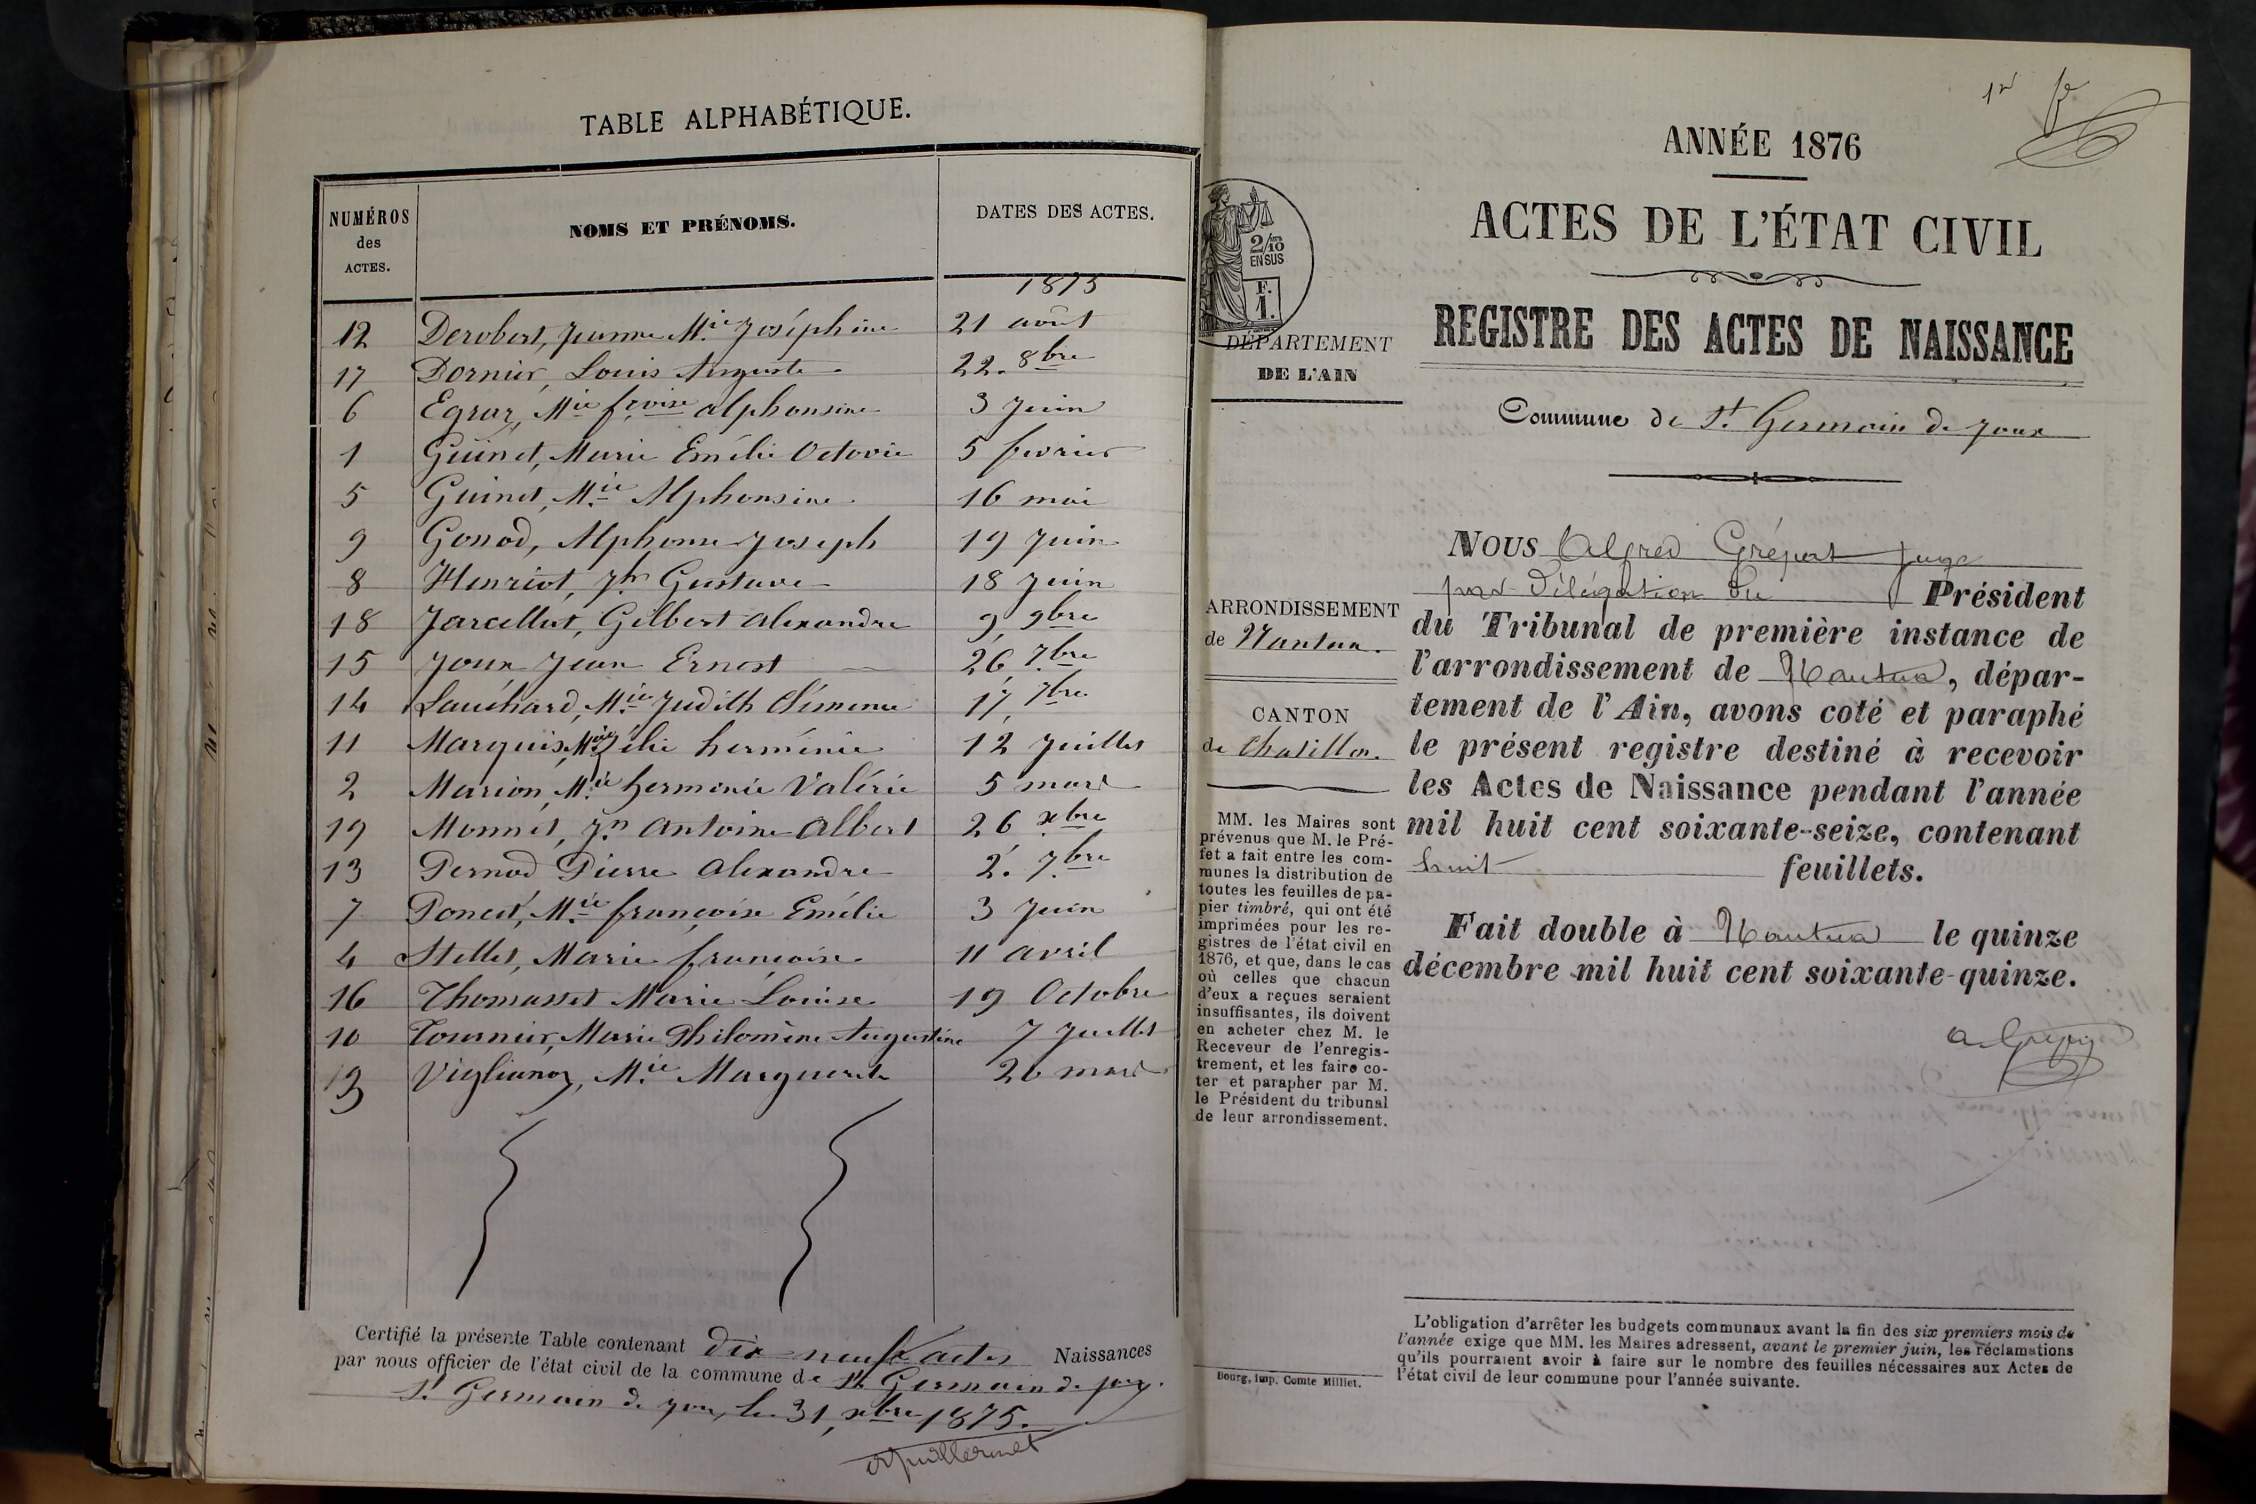 TABLE ALPHABÉTIQUE.
NUMÉROS des ACTES. NOMS ET PRÉNOMS. DATES DES ACTES.
1875
12 Derobert, Jeanne Mie Joséphine 21 août
17 Dornier, Louis Auguste 22. 8bre
6 Egraz, Mie fcoise alphonsine 3 Juin
1 Guinet, Marie Emélie Octavie 5 fevrier
5 Guinet, Mie Alphonsine 16 mai
9 Gonod, Alphonse Joseph 19 Juin
8 Henriot, Jh Gustave 18 Juin
18 Jarcellet, Gilbert alexandre 9, 9bre
15 Joux Jean Ernest 26, 7bre
14 Lauchard, Mie Judith Clémence 17, 7bre
11 Marquis, Mie Zélie herménie 12 Juillet
2 Marion, Mie hermenie Valérie 5 mars
19 Monnet, Jn Antoine Albert 26 xbre
13 Pernod Pierre alexandre 2. 7.bre
7 Poncet, Mie françoise Emélie 3 Juin
4 Stellet, Marie françoise 11 avril
16 Thomasset Marie Louise 19 Octobre
10 Tournier, Marie Philomène Augustine 7 Juillet
3 Viglianoz, Mie Marguerite 20 mars
Certifié la présente Table contenant dix neuf actes Naissances
par nous officier de l'état civil de la commune de St Germain de Joux.
St Germain de Joux, le 31, xbre 1875.
Guillermet
1er fe
ANNÉE 1876
ACTES DE L'ÉTAT CIVIL
REGISTRE DES ACTES DE NAISSANCE
Commune de St. Germain de Joux
2/10 EN SUS
F. 1.
DÉPARTEMENT
DE L'AIN
ARRONDISSEMENT
de Nantua.
CANTON
de Chatillon.
MM. les Maires sont
prévenus que M. le Pré-
fet a fait entre les com-
munes la distribution de
toutes les feuilles de pa-
pier timbré, qui ont été
imprimées pour les re-
gistres de l'état civil en
1876, et que, dans le cas
où celles que chacun
d'eux a reçues seraient
insuffisantes, ils doivent
en acheter chez M. le
Receveur de l'enregis-
trement, et les faire co-
ter et parapher par M.
le Président du tribunal
de leur arrondissement.
Bourg, imp. Comte Milliet.
NOUS Alfred Juge
par Délégation du Président
du Tribunal de première instance de
l'arrondissement de Nantua, dépar-
tement de l'Ain, avons coté et paraphé
le présent registre destiné à recevoir
les Actes de Naissance pendant l'année
mil huit cent soixante-seize, contenant
huit feuillets.
Fait double à Nantua le quinze
décembre mil huit cent soixante-quinze.
L'obligation d'arrêter les budgets communaux avant la fin des six premiers mois de
l'année exige que MM. les Maires adressent, avant le premier juin, les réclamations
qu'ils pourraient avoir à faire sur le nombre des feuilles nécessaires aux Actes de
l'état civil de leur commune pour l'année suivante.